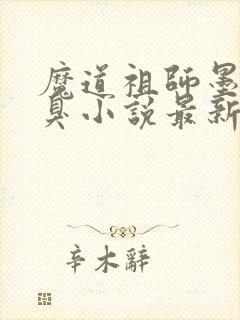 魔道祖師墨
臭小説最新
辛木辭